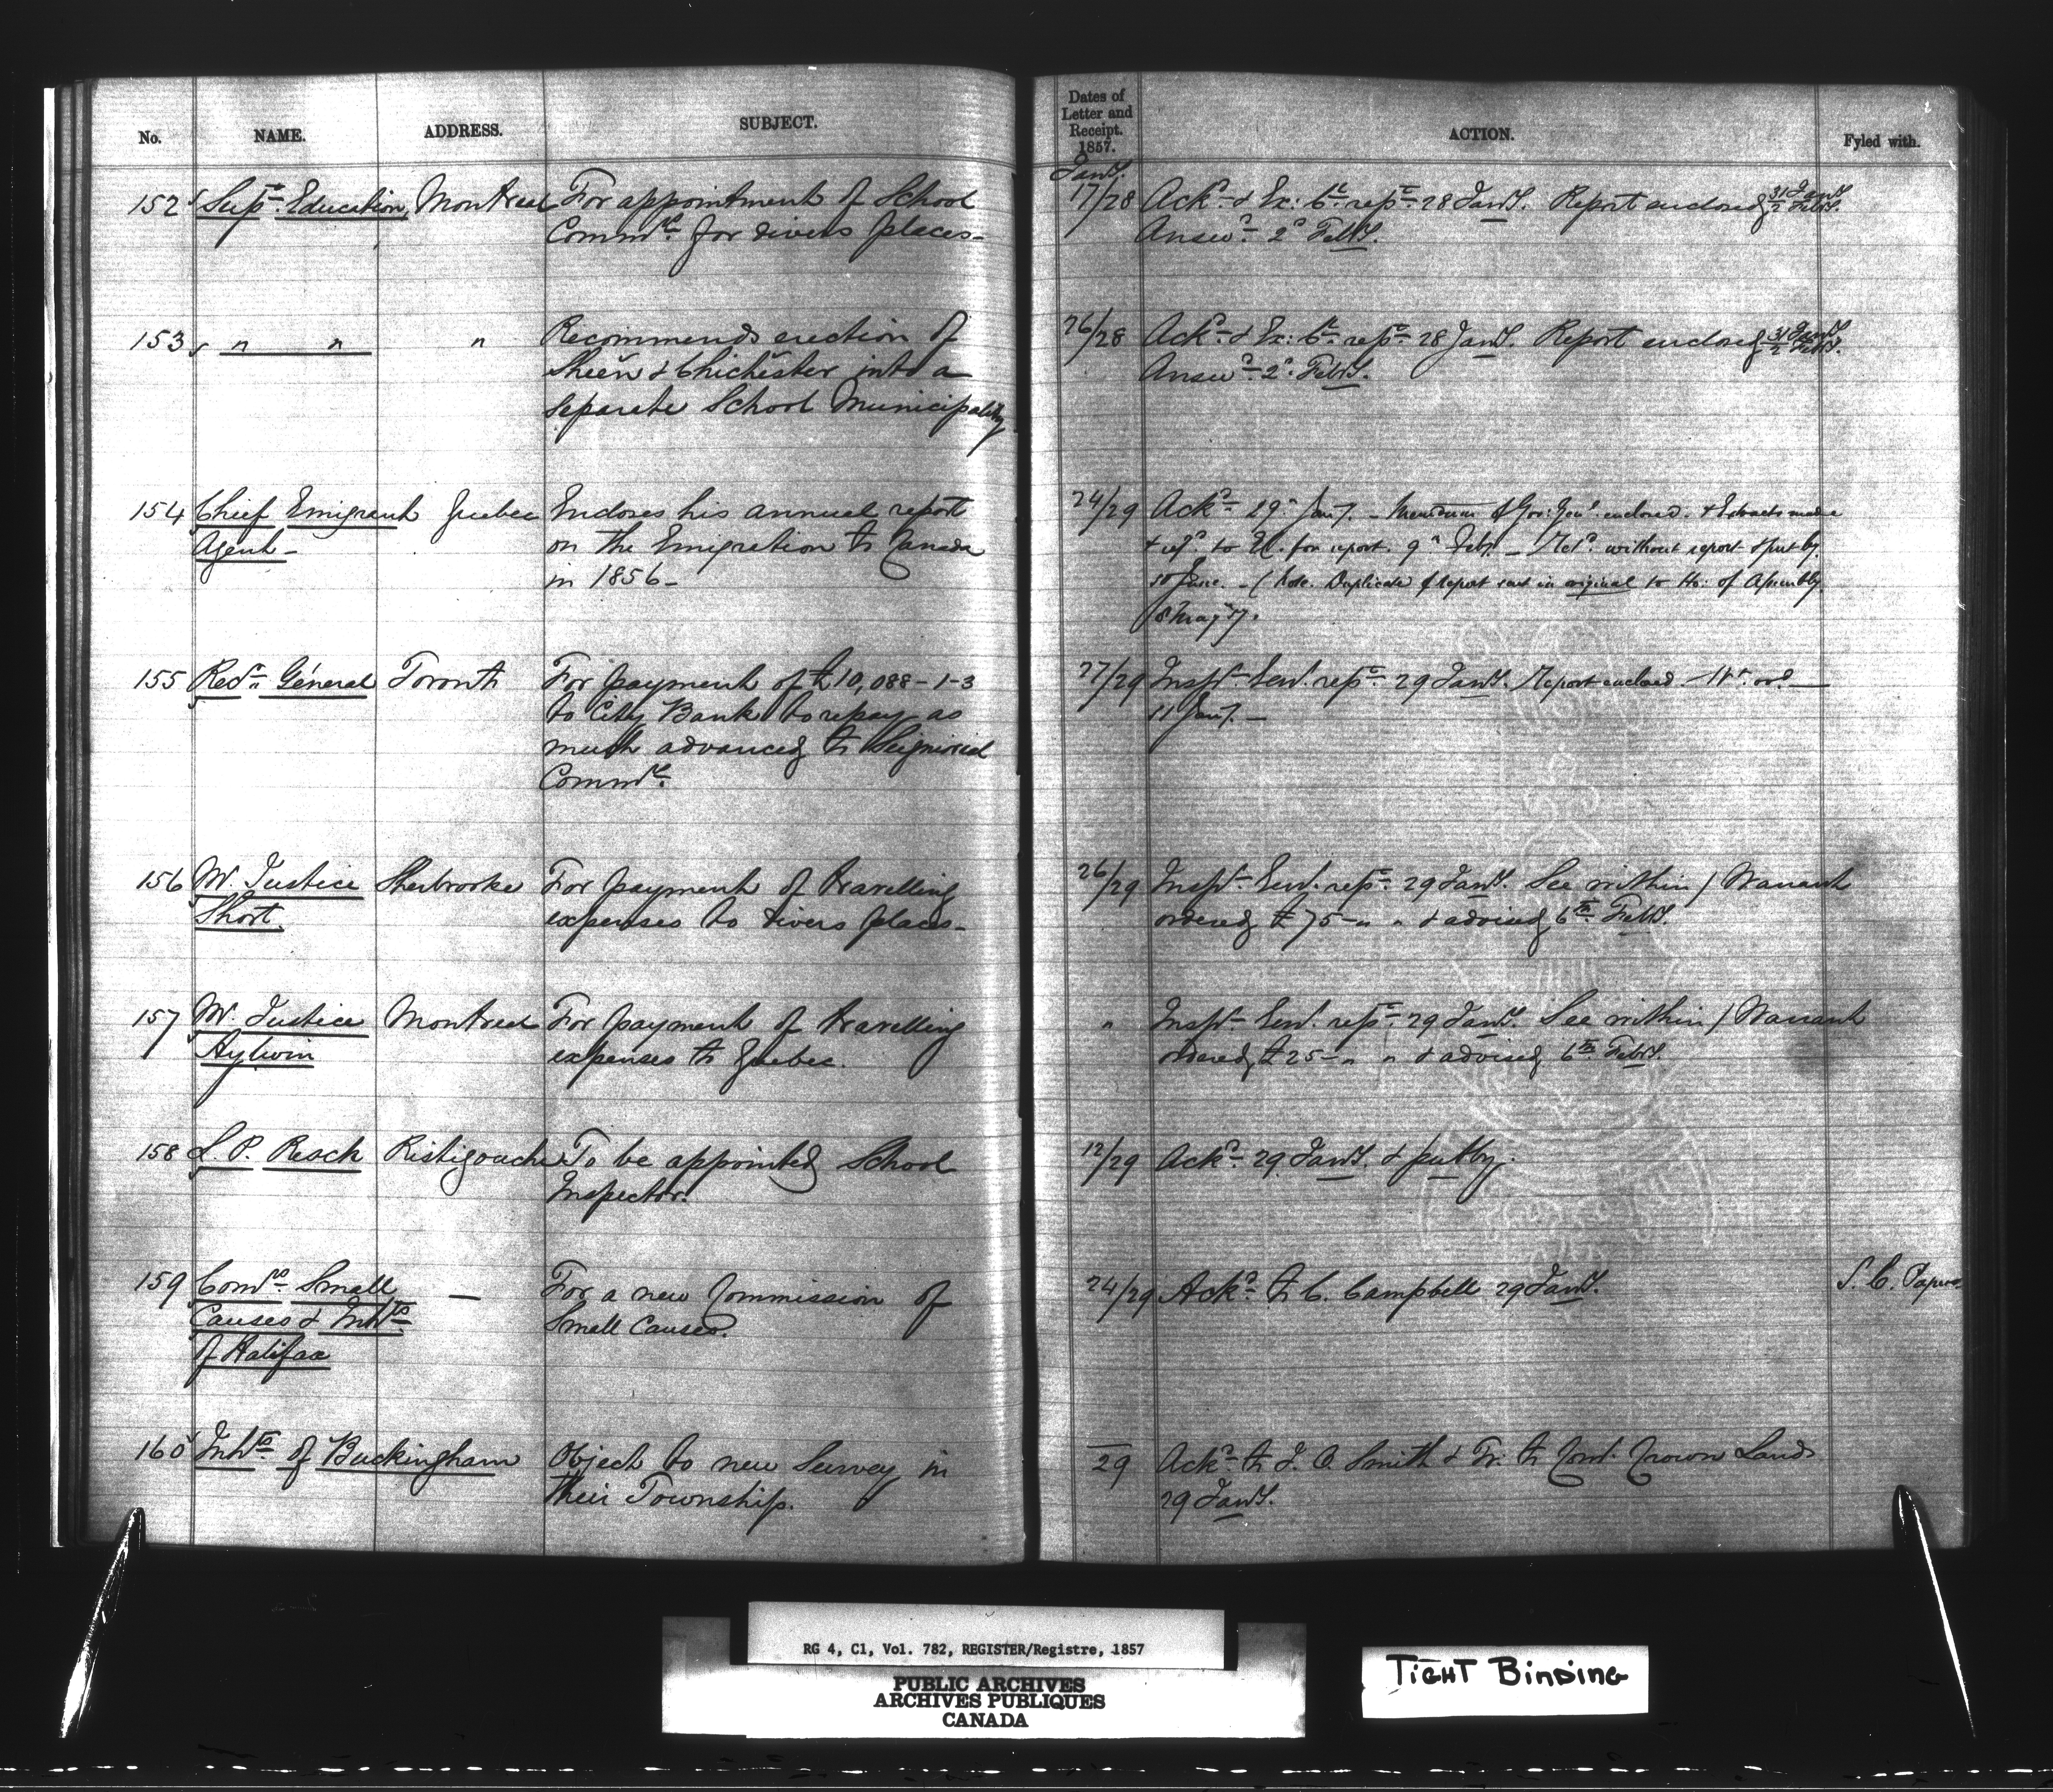 No. NAME. ADDRESS. SUBJECT. Dates of Letter and Receipt. 1857. ACTION. Fyled with.
Jany.
152 Supt. Education Montreal For appointment of School 17/28 Ackd. & Ex: Cl. repd. 28 Jany. Report enclosed 31 Jany. 2 Feby.
Commrs. for divers places- Answd. 2d Feby.
153 " " " Recommends erection of 26/28 Ackd. & Ex: Cl. repd. 28 Jany. Report enclosed 31 Jany. 2 Feby.
Sheen & Chichester into a Answd. 2d Feby.
separate School Municipality
154 Chief Emigrant Quebec Encloses his annual report 24/29 Ackd. 29 Jany. - Memdum of Gov: Genl. enclosed. & Extracts made
Agent- on the Emigration to Canada & refd. to for report. 9 Feby. - Retd. without report & put by
in 1856- 10 June. - (Note. Duplicate of report sent in original to Ho: of Assembly
8 May 57.
155 Recr. General Toronto For payment of £10,088-1-3 27/29 Inspr. Genl. repd. 29 Jany. Report enclosed. Wt. ord.
to City Bank to repay as 11 Jany. -
much advanced to Seignioral
Commrs.
156 Mr. Justice Sherbrooke For payment of travelling 26/29 Inspr. Genl. repd. 29 Jany. See within / Warrant
Short expenses to divers places- ordered £75-" " & advised 6th Feby.
157 Mr. Justice Montreal For payment of travelling " Inspr. Genl. repd. 29 Jany. See within / Warrant
Aylwin expenses to Quebec. ordered £25-" " & advised 6th Feby.
158 L. P. Resck Ristigouche To be appointed School 12/29 Ackd. 29 Jany. & put by.
Inspector.
159 Comrs. Small - For a new Commission of 24/29 Ackd. to C. Campbell 29 Jany. S. C. Papers
Causes & Inhts. Small Causes.
of Halifax
160 Inhts. of Buckingham Object to new Survey in 29 Ackd. to J. O. Smith & Tr. to Comr. Crown Lands
their Township. 29 Jany.
RG 4, C1, Vol. 782, REGISTER/Registre, 1857
PUBLIC ARCHIVES
ARCHIVES PUBLIQUES
CANADA
TIGHT BINDING